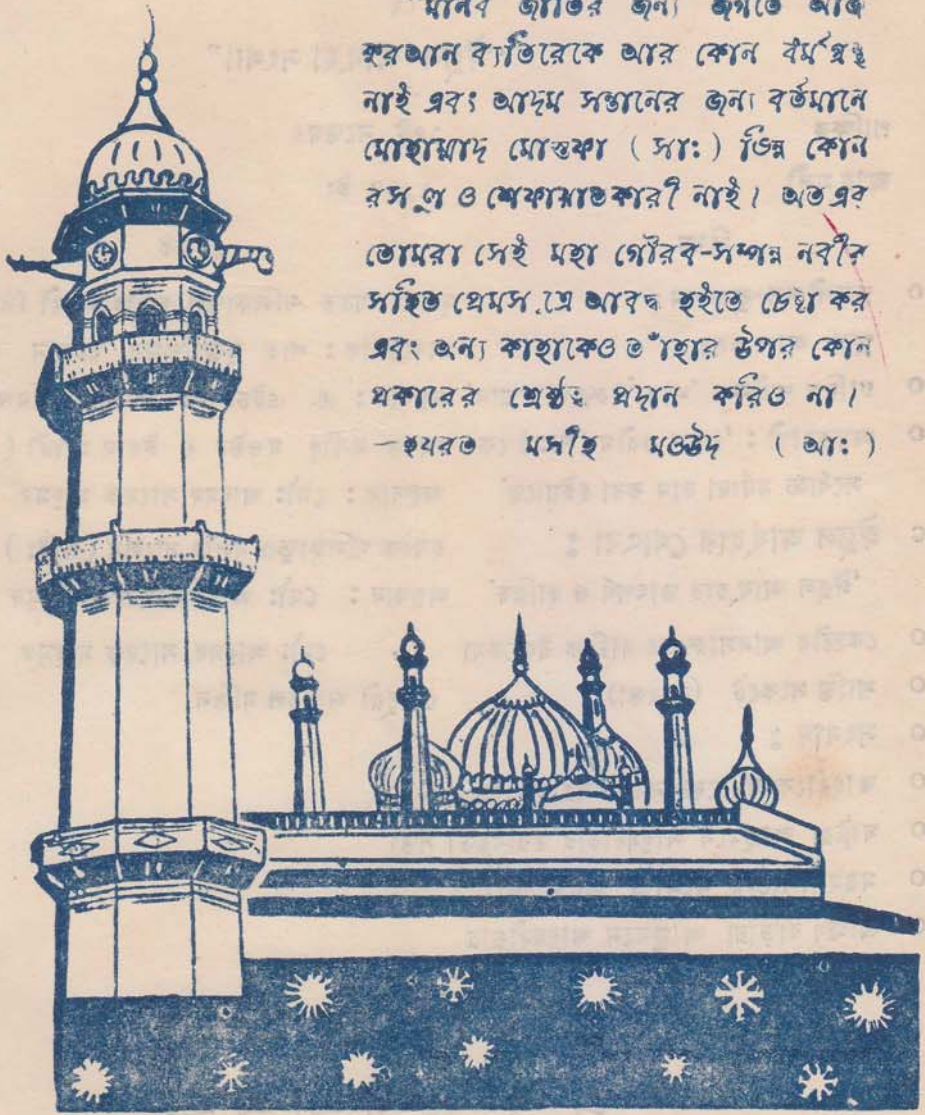 "মানব জাতির জন্য জগতে আজ
কুরআন ব্যতিরেকে আর কোন ধর্ম গ্রন্থ
নাই এবং আদম সন্তানের জন্য বর্তমানে
মোহাম্মাদ মোস্তফা ( সাঃ ) ভিন্ন কোন
রসূল ও শেফায়াতকারী নাই। অতএব
তোমরা সেই মহা গৌরব-সম্পন্ন নবীর
সহিত প্রেমসূত্রে আবদ্ধ হইতে চেষ্টা কর
এবং অন্য কাহাকেও তাঁহার উপর কোন
প্রকারের শ্রেষ্ঠত্ব প্রদান করিও না।
—হযরত মসীহ মওউদ ( আঃ )